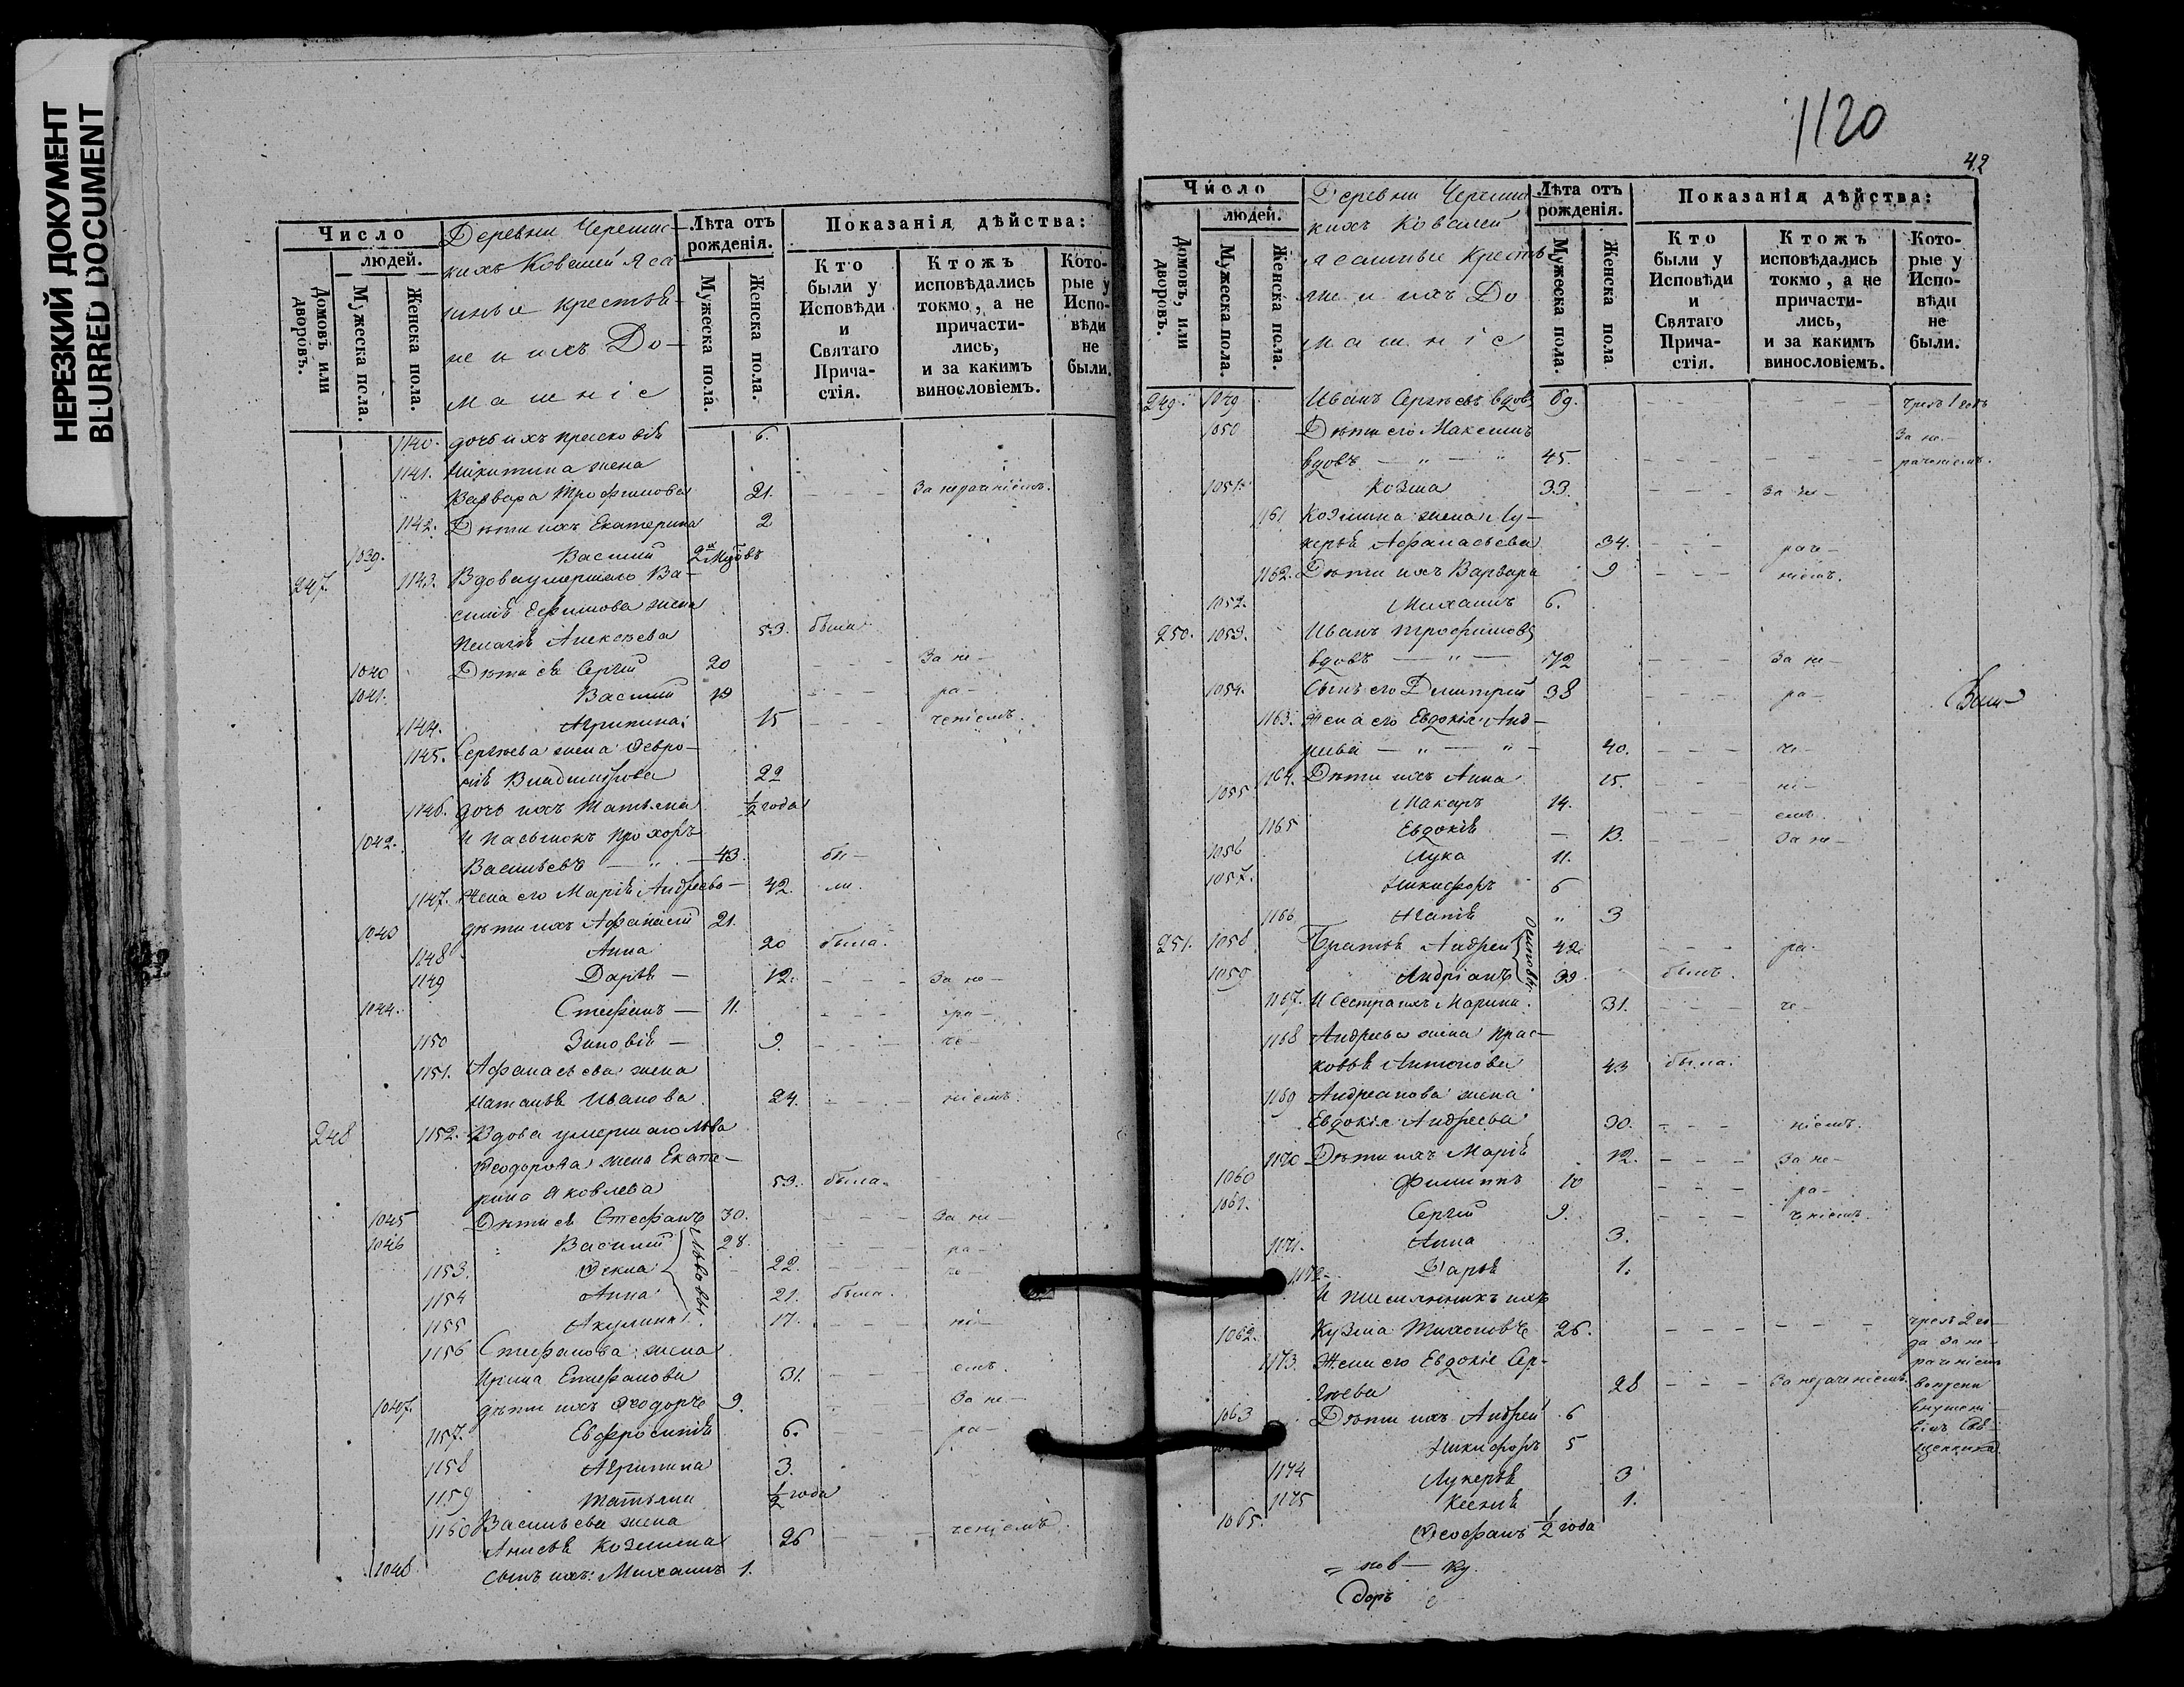 НЕРЕЗКИЙ ДОКУМЕНТ
BLURRED DOCUMENT
Число
людей.
Домовъ или дворовъ.
Мужеска пола.
Женска пола.
Деревни Черемис-
кихъ Ковалей Яса
шные крестья-
не и ихъ До-
машніе
Лѣта отъ рожденія.
Мужеска пола.
Женска пола.
Показанія дѣйства:
Кто были у Исповѣди и Святаго Прича-стія.
Ктожъ исповѣдались токмо, а не причасти-лись, и за какимъ винословіемъ.
Кото-рые у Испо-вѣди не были.
1140. дочь ихъ Прасковія 6.
1141. Никитина жена
Варвара Трофимова 21. - - - За нераченіемъ.
1142. Дѣти ихъ Екатерина 2
1039. Василій 2хъ
247. 1143. Вдова умершаго Ва-
силія Ефимова жена
Пелагія Алексѣева 53. была
1040 Дѣти ея Сергій 20 - - - За не-
1041. Василій 19 - - - ра-
1144. Агрипина 15 - - - ченіемъ.
1145. Сергѣева жена Февро-
нія Владимірова 22
1146. дочь ихъ Татьяна 1/2 года
1042. И пасынокъ Прохоръ
Васильевъ — „ — 43. бы-
1147. Жена его Марія Андреева — 42. ли.
1043 дѣти ихъ Афанасій 21.
1148 Анна 20 была.
1149 Дарья — 12. - - - За не-
1044. Стефанъ — 11. - - - ра-
1150 Зиновія — 9. - - - че-
1151. Афанасьева жена
Наталья Иванова 24. - - - ніемъ.
248 1152. Вдова умершаго Льва
Феодорова жена Екате-
рина Яковлева 53. была.
1045 Дѣти ея Стефанъ 30. - - - За не-
1046 Василій 28. - - - ра-
Львовы
1153. Фекла 22. - - - че-
1154 Анна 21. была.
1155 Акулина 17. - - - ні-
1156 Стефанова жена
Ирина Епифанова 31. - - - емъ.
1047. дѣти ихъ Феодоръ 9. - - - За не-
1157. Евфросинія 6. - ра-
1158 Агрипина 3.
1159 Татьяна 1/2 года
1160 Васильева жена
Анисья Козмина 26 - - - ченіемъ.
1048 сынъ ихъ: Михаилъ 1.
1120
42
Число
людей.
Домовъ, или дворовъ.
Мужеска пола.
Женска пола.
Деревни Черемис
кихъ Ковалей
ясашные Крестья
не и ихъ До
машніе
Лѣта отъ рожденія.
Мужеска пола.
Женска пола
Показанія дѣйства:
Кто были у Исповѣди и Святаго Прича-стія.
Ктожъ исповѣдались токмо, а не причасти-лись, и за какимъ винословіемъ.
Кото-рые у Испо-вѣди не были.
249. 1049 Иванъ Сергѣевъ вдовъ 69. - - - - - - чрезъ 1 годъ
1050 Дѣти его Максимъ За не-
вдовъ — „ — „ 45. - - - - - - раченіемъ.
1051. Козма 33. - - - За не-
1161 Козмина жена Лу-
керья Афанасьева 34. - - - раче-
1162. Дѣти ихъ Варвара 9 - - - ніемъ.
1052. Михаилъ 6.
250. 1053. Иванъ Трофимовъ
вдовъ — „ — 72 - - - За не-
1054. Сынъ его Димитрій 38 - - - ра-
1163. Жена его Евдокія Анд-
реева — „ — „ — 40. - - - че-
1164. Дѣти ихъ Анна 15. - - - ні-
1055 Макаръ 14. - - - емъ.
1165 Евдокія — 13. - - - За не-
1056 Лука 11.
1057. Никифоръ 6
1166 Агапія „ 3
251. 1058 Братья Андрей 42. - - - ра-
1059 Андріанъ 39 былъ.
1167. И Сестра ихъ Марина. 31. - - - че-
1168 Андреева жена Прас-
ковья Антонова 43 была.
1169 Андреанова жена
Евдокія Андреева 30. - - - ніемъ.
1170 Дѣти ихъ Марія 12. - - - За не-
1060 Филиппъ 10 - - - ра-
1061. Сергій 9. - - - ченіемъ.
1171. Анна 3.
1172. Дарья 1.
И племянникъ ихъ
1062. Кузма Тихоновъ 26. - - - - - - чрезъ 2 го-
да за не-
1173. Жена его Евдокія Сер- раченіемъ
гѣева 28 - - - За нераченіемъ. вопреки
1063 Дѣти ихъ Андрей 6 внушені-
Никифоръ 5
1174 Лукерья 3
1175 Ксенія 1.
1065. Феофанъ 1/2 года